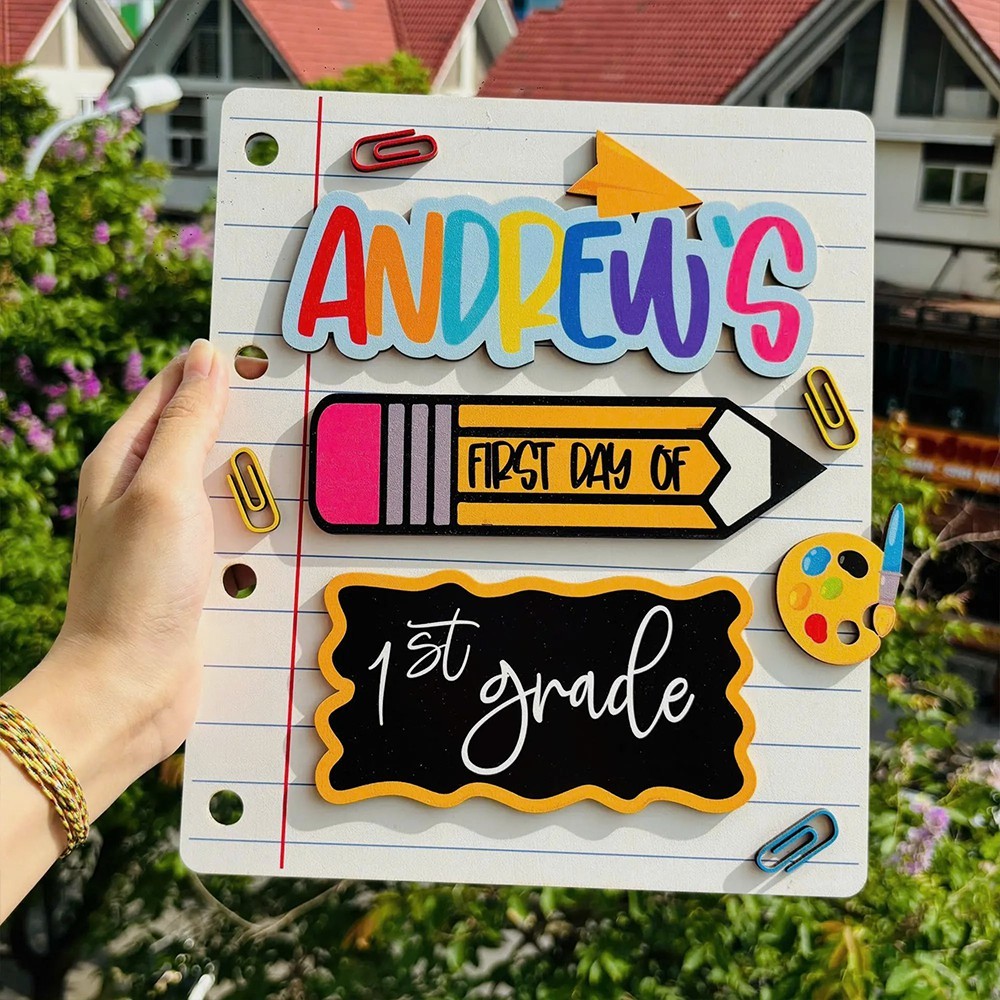 ANDREW'S
FIRST DAY OF
1st grade